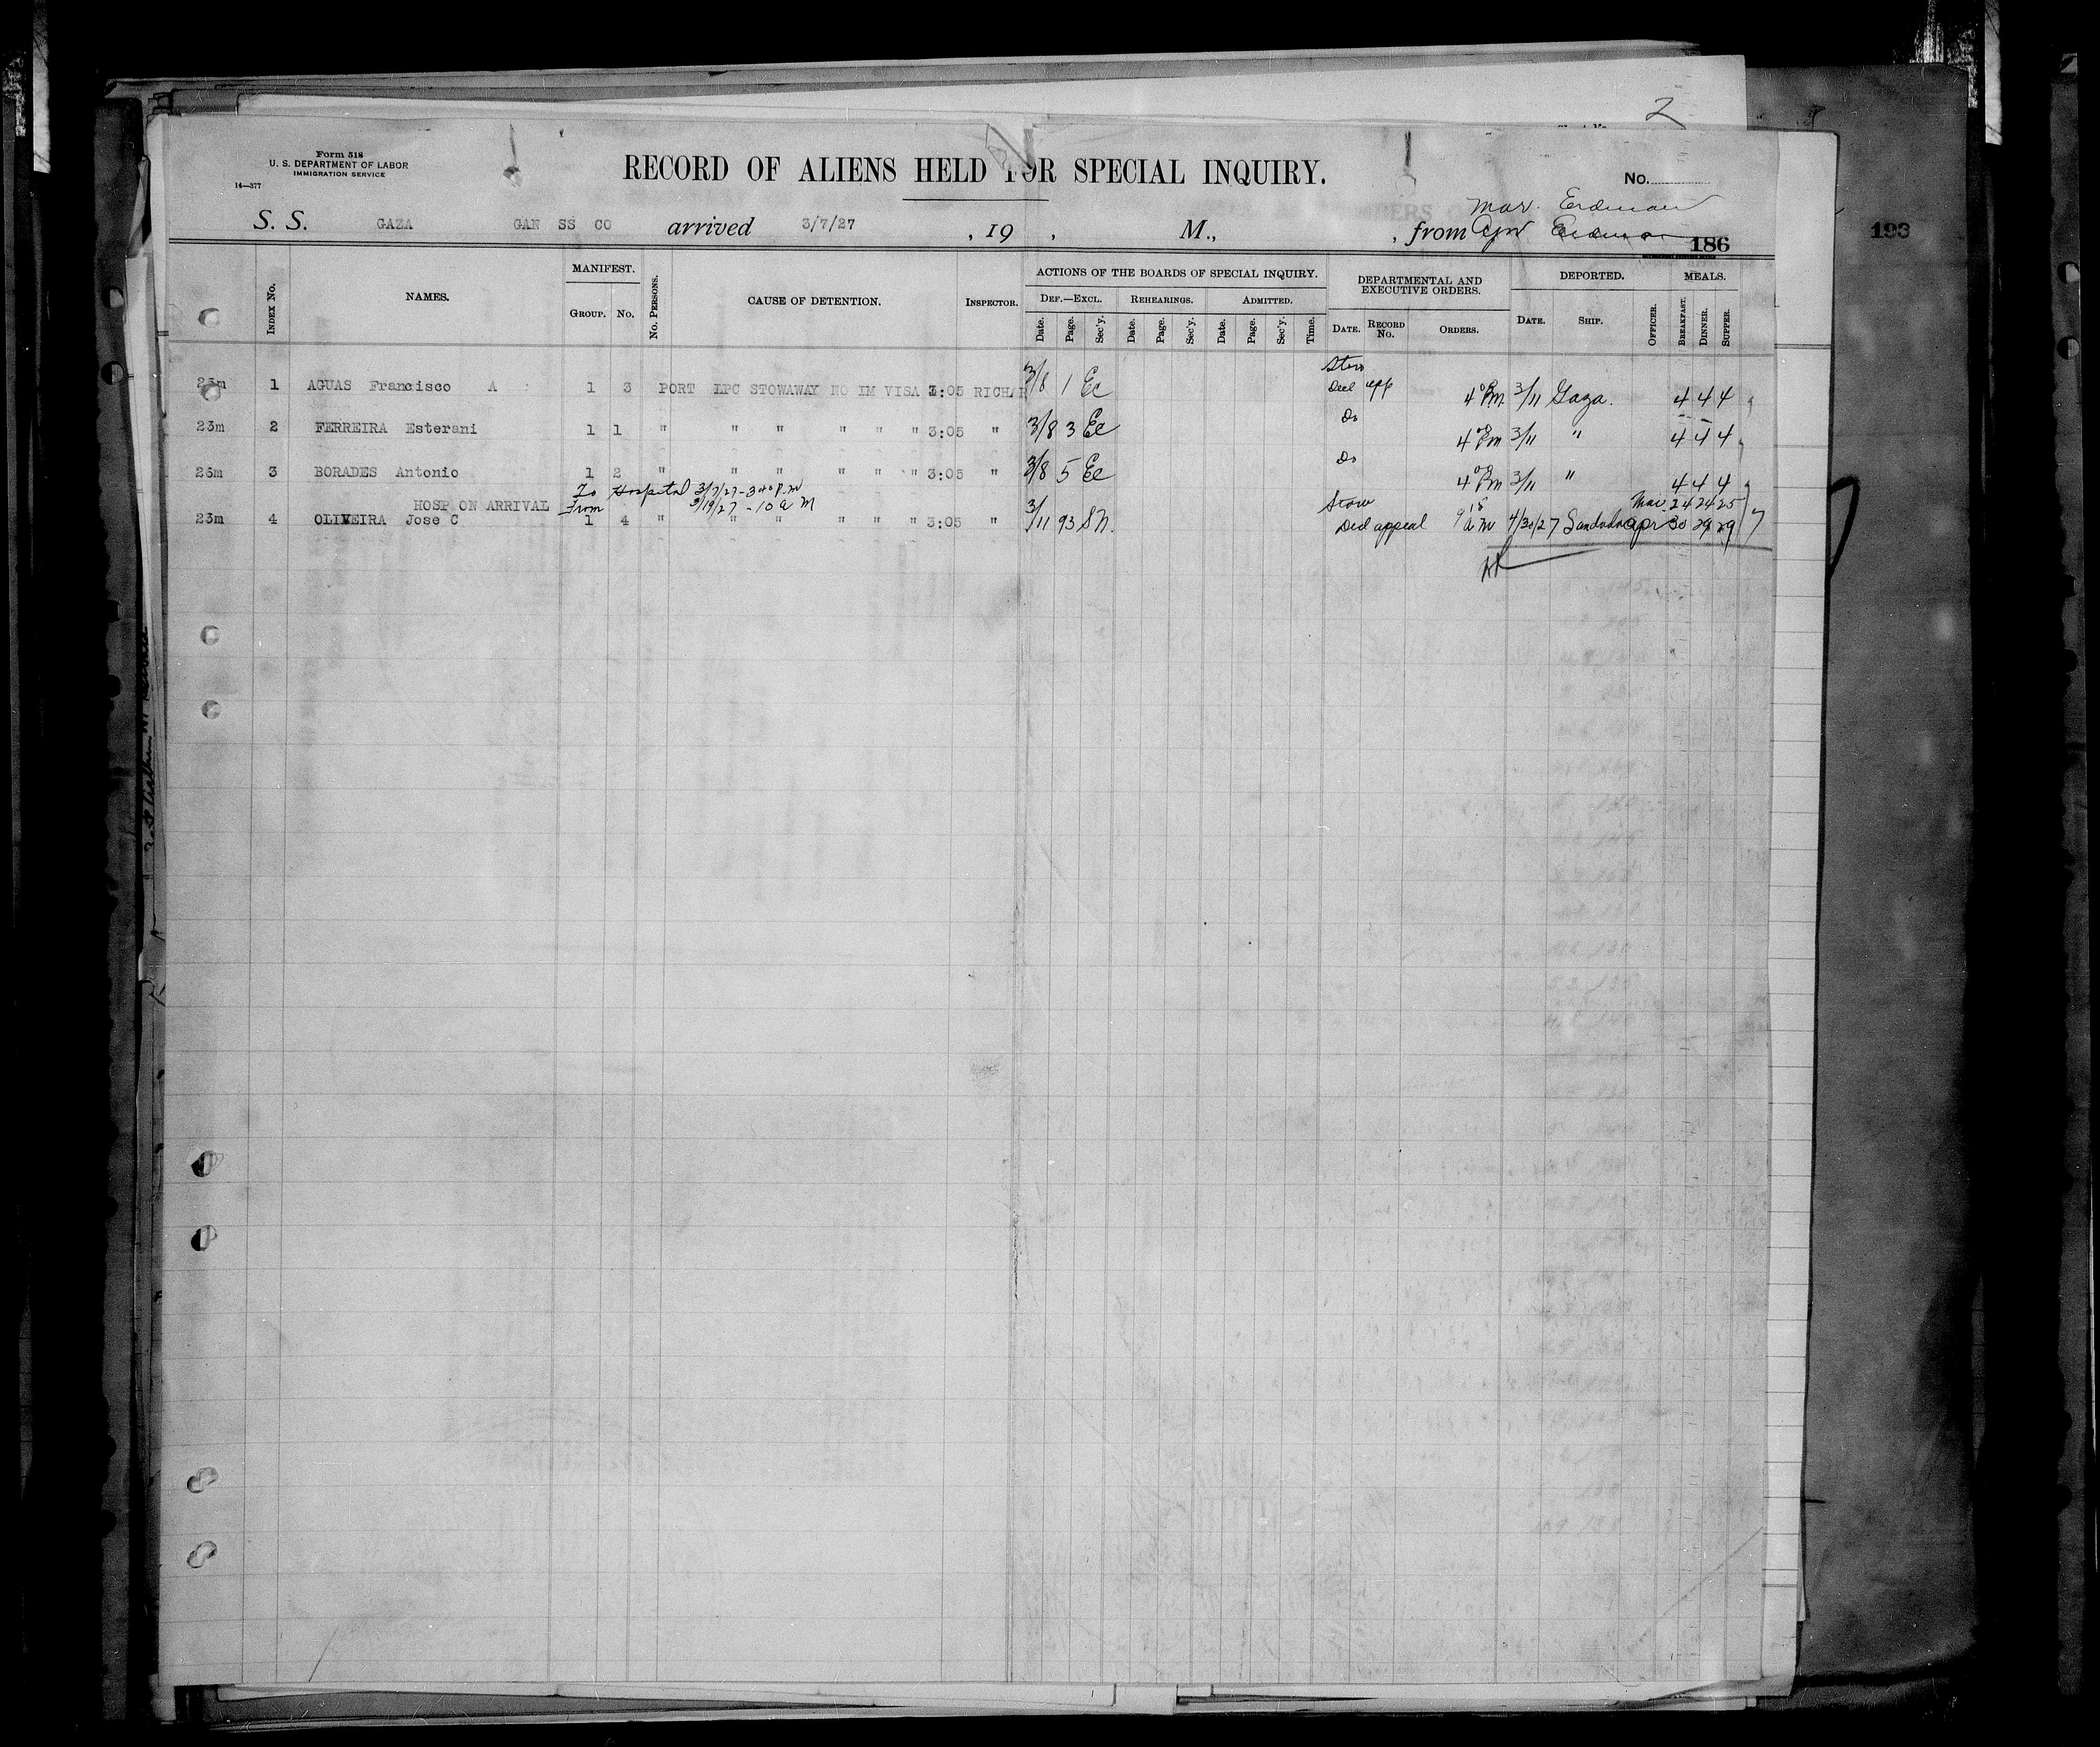 2
Form 518
U. S. DEPARTMENT OF LABOR
IMMIGRATION SERVICE
14—377
RECORD OF ALIENS HELD FOR SPECIAL INQUIRY.
No.
Mar. Erdman
S. S. GAZA GAN SS CO arrived 3/7/27 , 19 , M., , from
186
193
INDEX No. NAMES. MANIFEST. GROUP. No. No. PERSONS. CAUSE OF DETENTION. INSPECTOR. ACTIONS OF THE BOARDS OF SPECIAL INQUIRY. DEF.—EXCL. Date. Page. Sec'y. REHEARINGS. Date. Page. Sec'y. ADMITTED. Date. Page. Sec'y. Time. DEPARTMENTAL AND EXECUTIVE ORDERS. DATE. RECORD No. ORDERS. DEPORTED. DATE. SHIP. OFFICER. MEALS. BREAKFAST. DINNER. SUPPER.
Stow
1 AGUAS Francisco A 1 3 PORT LPC STOWAWAY NO IM VISA 3:05 RICHAR 3/8 1 Ec Decl app 4 00 PM 3/11 Gaza. 4 4 4
23m 2 FERREIRA Esterani 1 1 " " " " " " 3:05 " 3/8 3 Ec Do 4 00 Pm 3/11 " 4 4 4
26m 3 BORADES Antonio 1 2 " " " " " " 3:05 " 3/8 5 Ec Do 4 00 Pm 3/11 " 4 4 4
To Hospital 3/7/27 - 3 40 P.M
HOSP ON ARRIVAL From 3/19/27 - 10 a M Stow Mar 24 24 25
23m 4 OLIVEIRA Jose C 1 4 " " " " " " 3:05 " 3/11 93 SN. Decl appeal 9 15 a m 4/30/27 apr 30 29 29 7